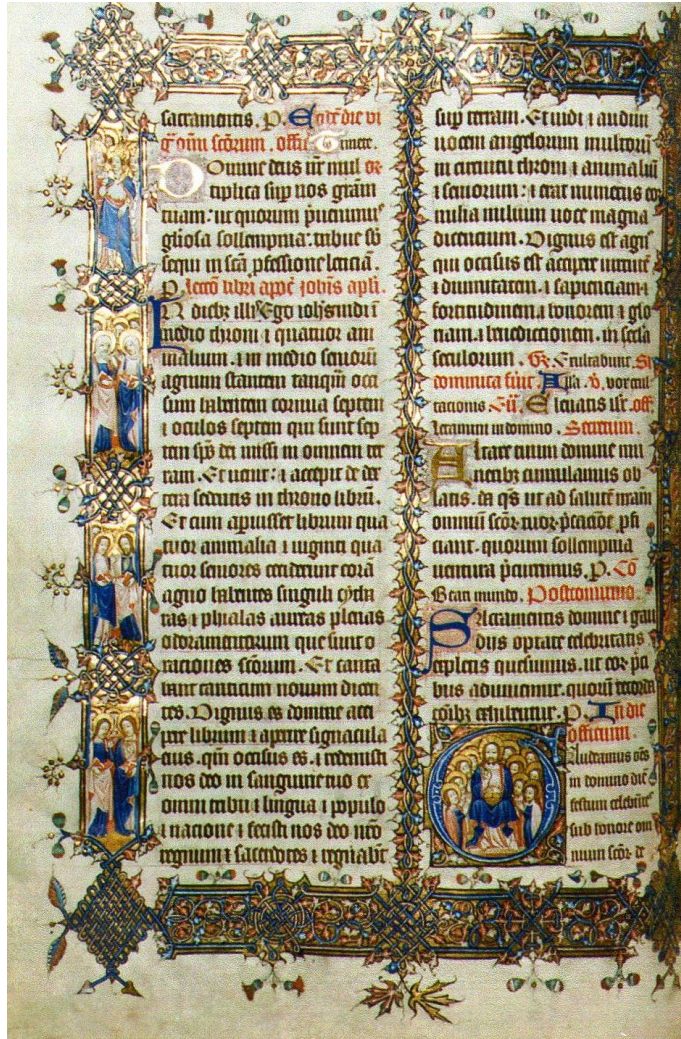 sacramentis. P. Eodē die vi
gł om̄ scōrum. offm̄ Timete.
Domine deus nr̄ mul
tiplica sup nos grām
tuam: ut quorum p̄uenimus
gliosa sollempnia: tribue sb
sequi in scā pfessione leticiā.
P. lectō libri apoc̄ johīs apłi.
In diebꝫ illis Ego iohs uidi ī
medio throni ⁊ quatuor ani
malium. ⁊ in medio seniorū
agnum stantem tanqm̄ occi
sum habentem cornua septem
⁊ oculos septem qui sunt sep
tem spūs dei missi in omnem ter
ram. Et uenit: ⁊ accepit de dex
tera sedentis in throno librū.
Et cum aperuisset librum qua
tuor animalia ⁊ uiginti qua
tuor seniores ceciderunt corā
agno habentes singuli cytha
ras ⁊ phialas aureas plenas
odoramentorum que sunt o
raciones scōrum. Et canta
bant canticum nouum dicen
tes. Dignus es domine acci
pere librum ⁊ aperire signacula
eius. qm̄ occisus es. ⁊ redemisti
nos deo in sanguine tuo ex
omni tribu ⁊ lingua ⁊ populo
⁊ nacione ⁊ fecisti nos deo nr̄o
regnum ⁊ sacerdotes ⁊ regnabt
sup terram. Et uidi ⁊ audiui
uocem angelorum multorū
in circuitu throni ⁊ animaliū
⁊ seniorum: ⁊ erat numerus eoꝝ
milia milium uoce magna
dicencium. Dignus est agn'
qui occisus est accipere uirtutē
⁊ diuinitatem. ⁊ sapienciam ⁊
fortitudinem. ⁊ honorem ⁊ glo
riam. ⁊ benedictionem. in scl̄a
seculorum. Gr̄. Exultabunt. Si
comunia fūnt Alla. V. vox exul
tacionis Eū. Eleuatis ihc̄. off.
Letamini in domino. Secretum.
Altare tuum domine mu
neribꝫ cumulamus ob
latis. da qs̄ ut ad salutē nram
omniū scōꝝ tuoꝝ p̄cacione pfi
ciant. quorum sollempnia
uentura p̄currimus. P. Cō
Beati mundo. Postcomunio.
Sacramentis domine ⁊ gau
diis optate celebritatis
expletis quesumus. ut eoꝝ pci
bus adiuuemur. quoꝝ recorda
cōibꝫ exhibentur. P. In die
officium.
Gaudeamus oēs
in domino diē
festum celebrātes
sub honore om
nium scōꝝ de